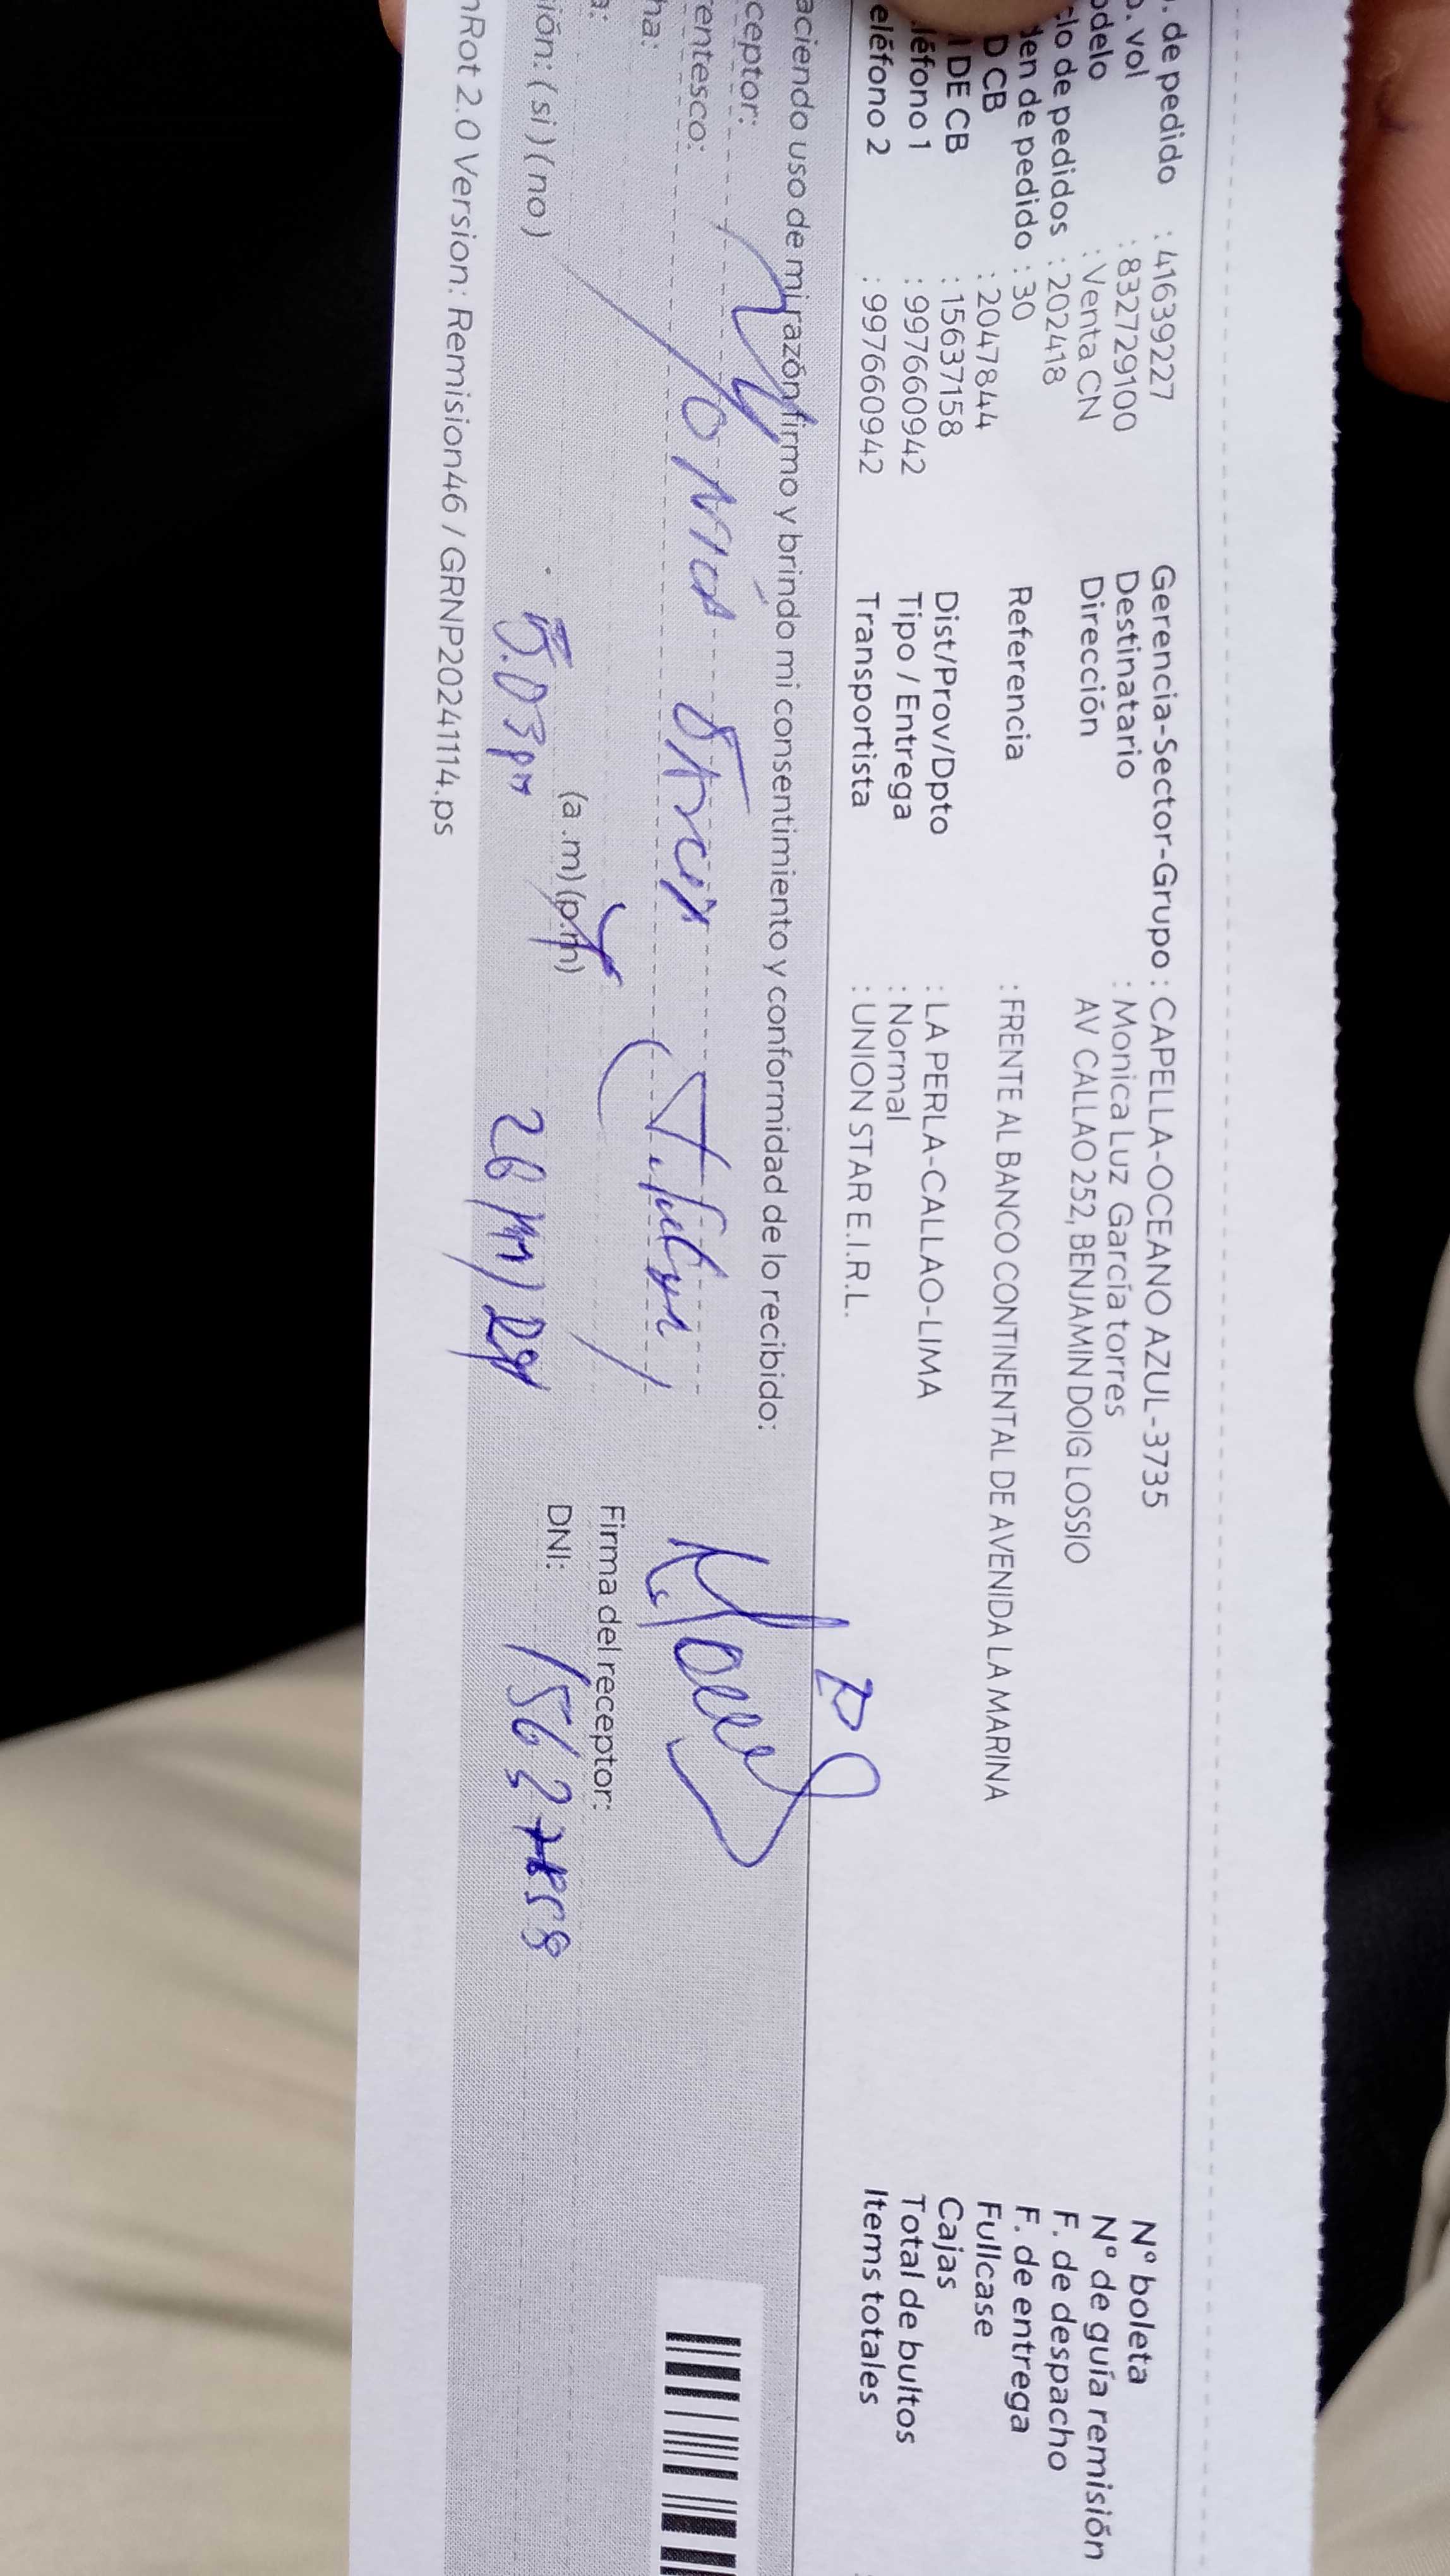 . de pedido : 41639227
. vol : 832729100
odelo : Venta CN
clo de pedidos : 202418
den de pedido : 30
D CB : 2047844
I DE CB : 15637158
léfono 1 : 997660942
eléfono 2 : 997660942
Gerencia-Sector-Grupo : CAPELLA-OCEANO AZUL-3735
Destinatario : Monica Luz García torres
Dirección AV CALLAO 252, BENJAMIN DOIG LOSSIO
Referencia : FRENTE AL BANCO CONTINENTAL DE AVENIDA LA MARINA
Dist/Prov/Dpto : LA PERLA-CALLAO-LIMA
Tipo / Entrega : Normal
Transportista : UNION STAR E.I.R.L.
N° boleta
N° de guía remisión
F. de despacho
F. de entrega
Fullcase
Cajas
Total de bultos
Items totales
aciendo uso de mi razón firmo y brindo mi consentimiento y conformidad de lo recibido:
ceptor:
entesco:
ha:
a: (a.m) (p.m)
ión: ( si ) ( no )
Firma del receptor:
DNI:
nRot 2.0 Version: Remision46 / GRNP20241114.ps